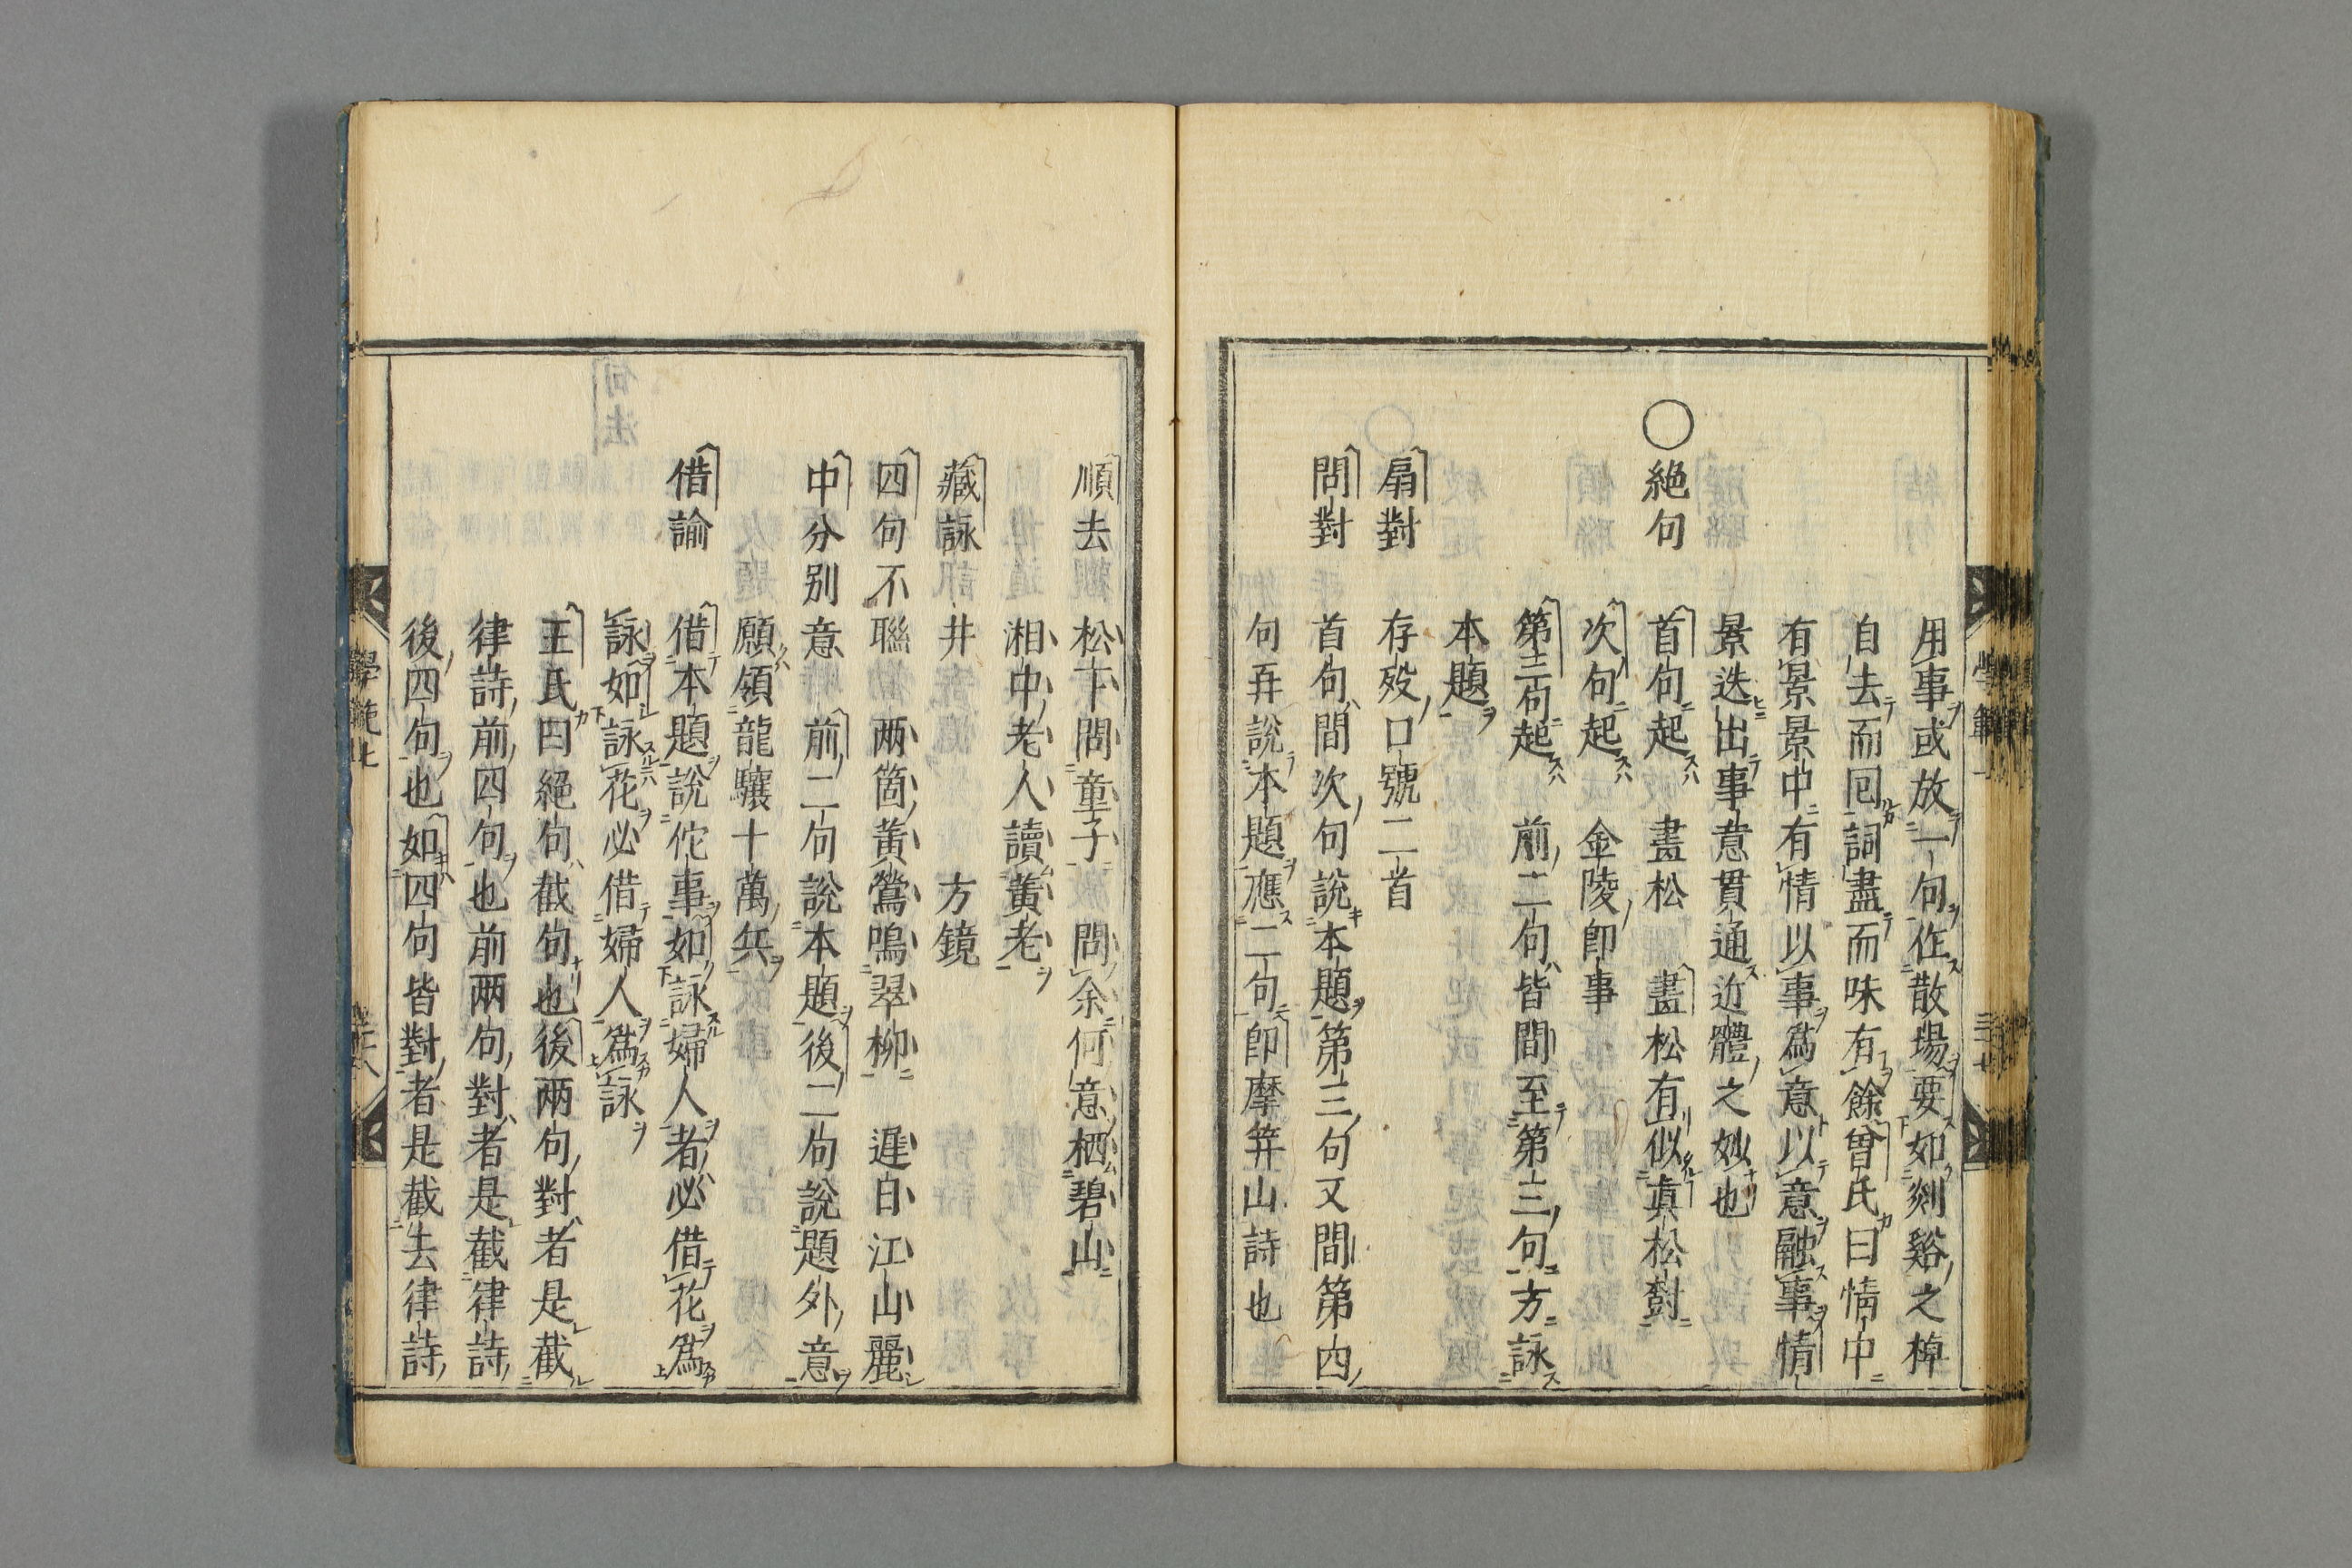 用事或放一句作散場要如剡谿之棹
自去而囘詞盡而味有餘曾氏曰情中
有景景中有情以事為意以意融事情
景迭出事意貫通近體之妙也
○絶句 首句起 畫松 畫松有似真松樹
次句起 金陵即事
第三句起 前二句皆間至第三句方詠
本題
扇對 存殁口號二首
問對 首句間次句說本題第三句又間第四
句再說本題應二句即摩笄山詩也
順去 松下問童子 問余何意栖碧山
湘中老人讀黃老
藏詠 井 方鏡
四句不聯 兩箇黃鶯鳴翠柳 遲日江山麗
中分别意 前二句說本題後二句說題外意
願領龍驤十萬兵
借諭 借本題說佗事如詠婦人者必借花為
詠如詠花必借婦人為詠
王氏曰絶句截句也後兩句對者是截
律詩前四句也前兩句對者是截律詩
後四句也如四句皆對者是截去律詩
學範上